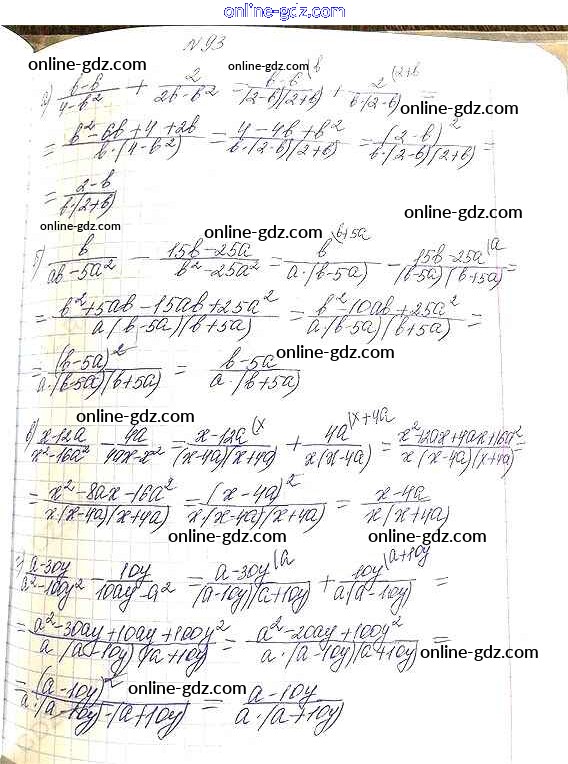 online-gdz.com
N 93
online-gdz.com online-gdz.com
а) (b-6)/(4-b²) + 2/(2b-b²) = (b-6)/((2-b)(2+b)) |b + 2/(b(2-b)) |2+b =
online-gdz.com
= (b²-6b+4+2b)/(b·(4-b²)) = (4-4b+b²)/(b·(2-b)(2+b)) = (2-b)²/(b·(2-b)(2+b)) =
= (2-b)/(b·(2+b))
online-gdz.com online-gdz.com online-gdz.com
б) b/(ab-5a²) - (15b-25a)/(b²-25a²) = b/(a·(b-5a)) |b+5a - (15b-25a)/((b-5a)(b+5a)) |a =
= (b²+5ab-15ab+25a²)/(a(b-5a)(b+5a)) = (b²-10ab+25a²)/(a(b-5a)(b+5a)) =
online-gdz.com
= (b-5a)²/(a·(b-5a)(b+5a)) = (b-5a)/(a·(b+5a))
online-gdz.com
в) (x-12a)/(x²-16a²) - 4a/(4ax-x²) = (x-12a)/((x-4a)(x+4a)) |x + 4a/(x(x-4a)) |x+4a = (x²-12ax+4ax+16a²)/(x(x-4a)(x+4a)) =
online-gdz.com
= (x²-8ax-16a²)/(x·(x-4a)(x+4a)) = (x-4a)²/(x·(x-4a)(x+4a)) = (x-4a)/(x(x+4a))
online-gdz.com online-gdz.com
г) (a-30y)/(a²-100y²) - 10y/(10ay-a²) = (a-30y)/((a-10y)(a+10y)) |a + 10y/(a(a-10y)) |a+10y =
= (a²-30ay+10ay+100y²)/(a·(a-10y)(a+10y)) = (a²-20ay+100y²)/(a·(a-10y)(a+10y)) =
online-gdz.com online-gdz.com
= (a-10y)²/(a·(a-10y)·(a+10y)) = (a-10y)/(a·(a+10y))
online-gdz.com online-gdz.com